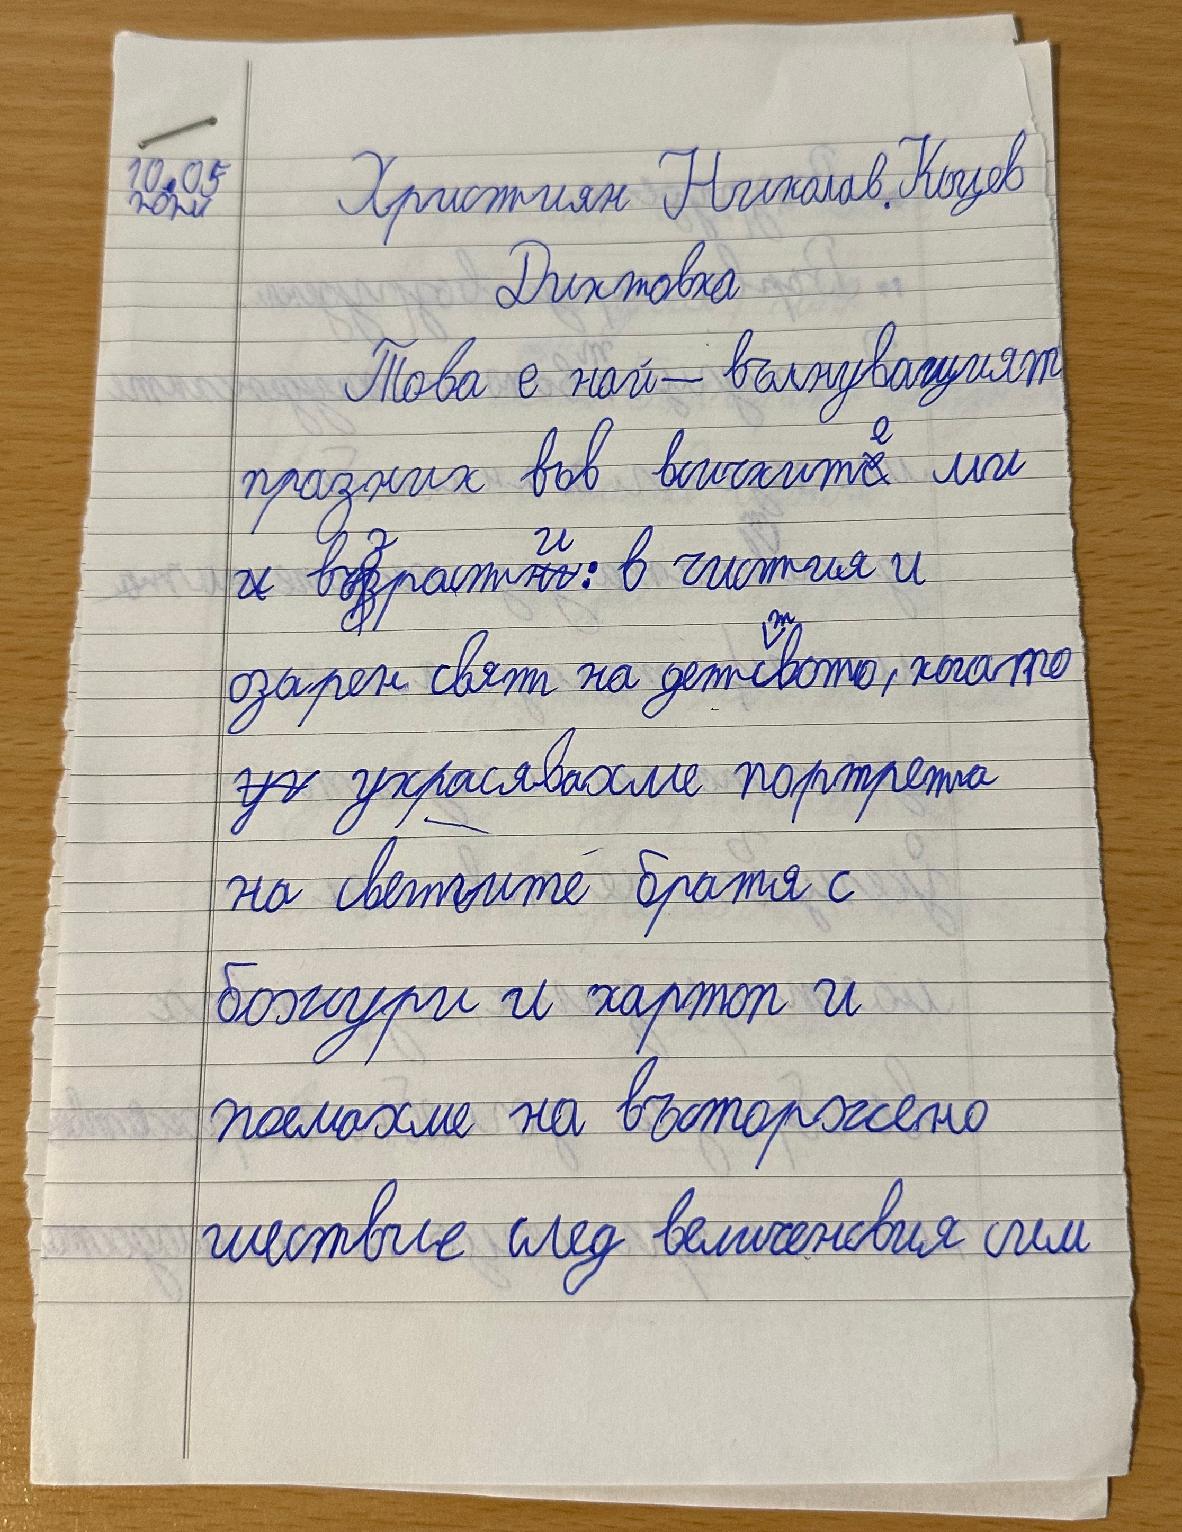 10.05
Християн Николав. Коцев
Диктовка
Това е най-вълнуващият
празник във всичките ми
възрасти: в чистия и
озарен свят на детството, когато
украсявахме портрета
на светците братя с
божури и картоп и
поемахме на възторжено
шествие след величеновия им